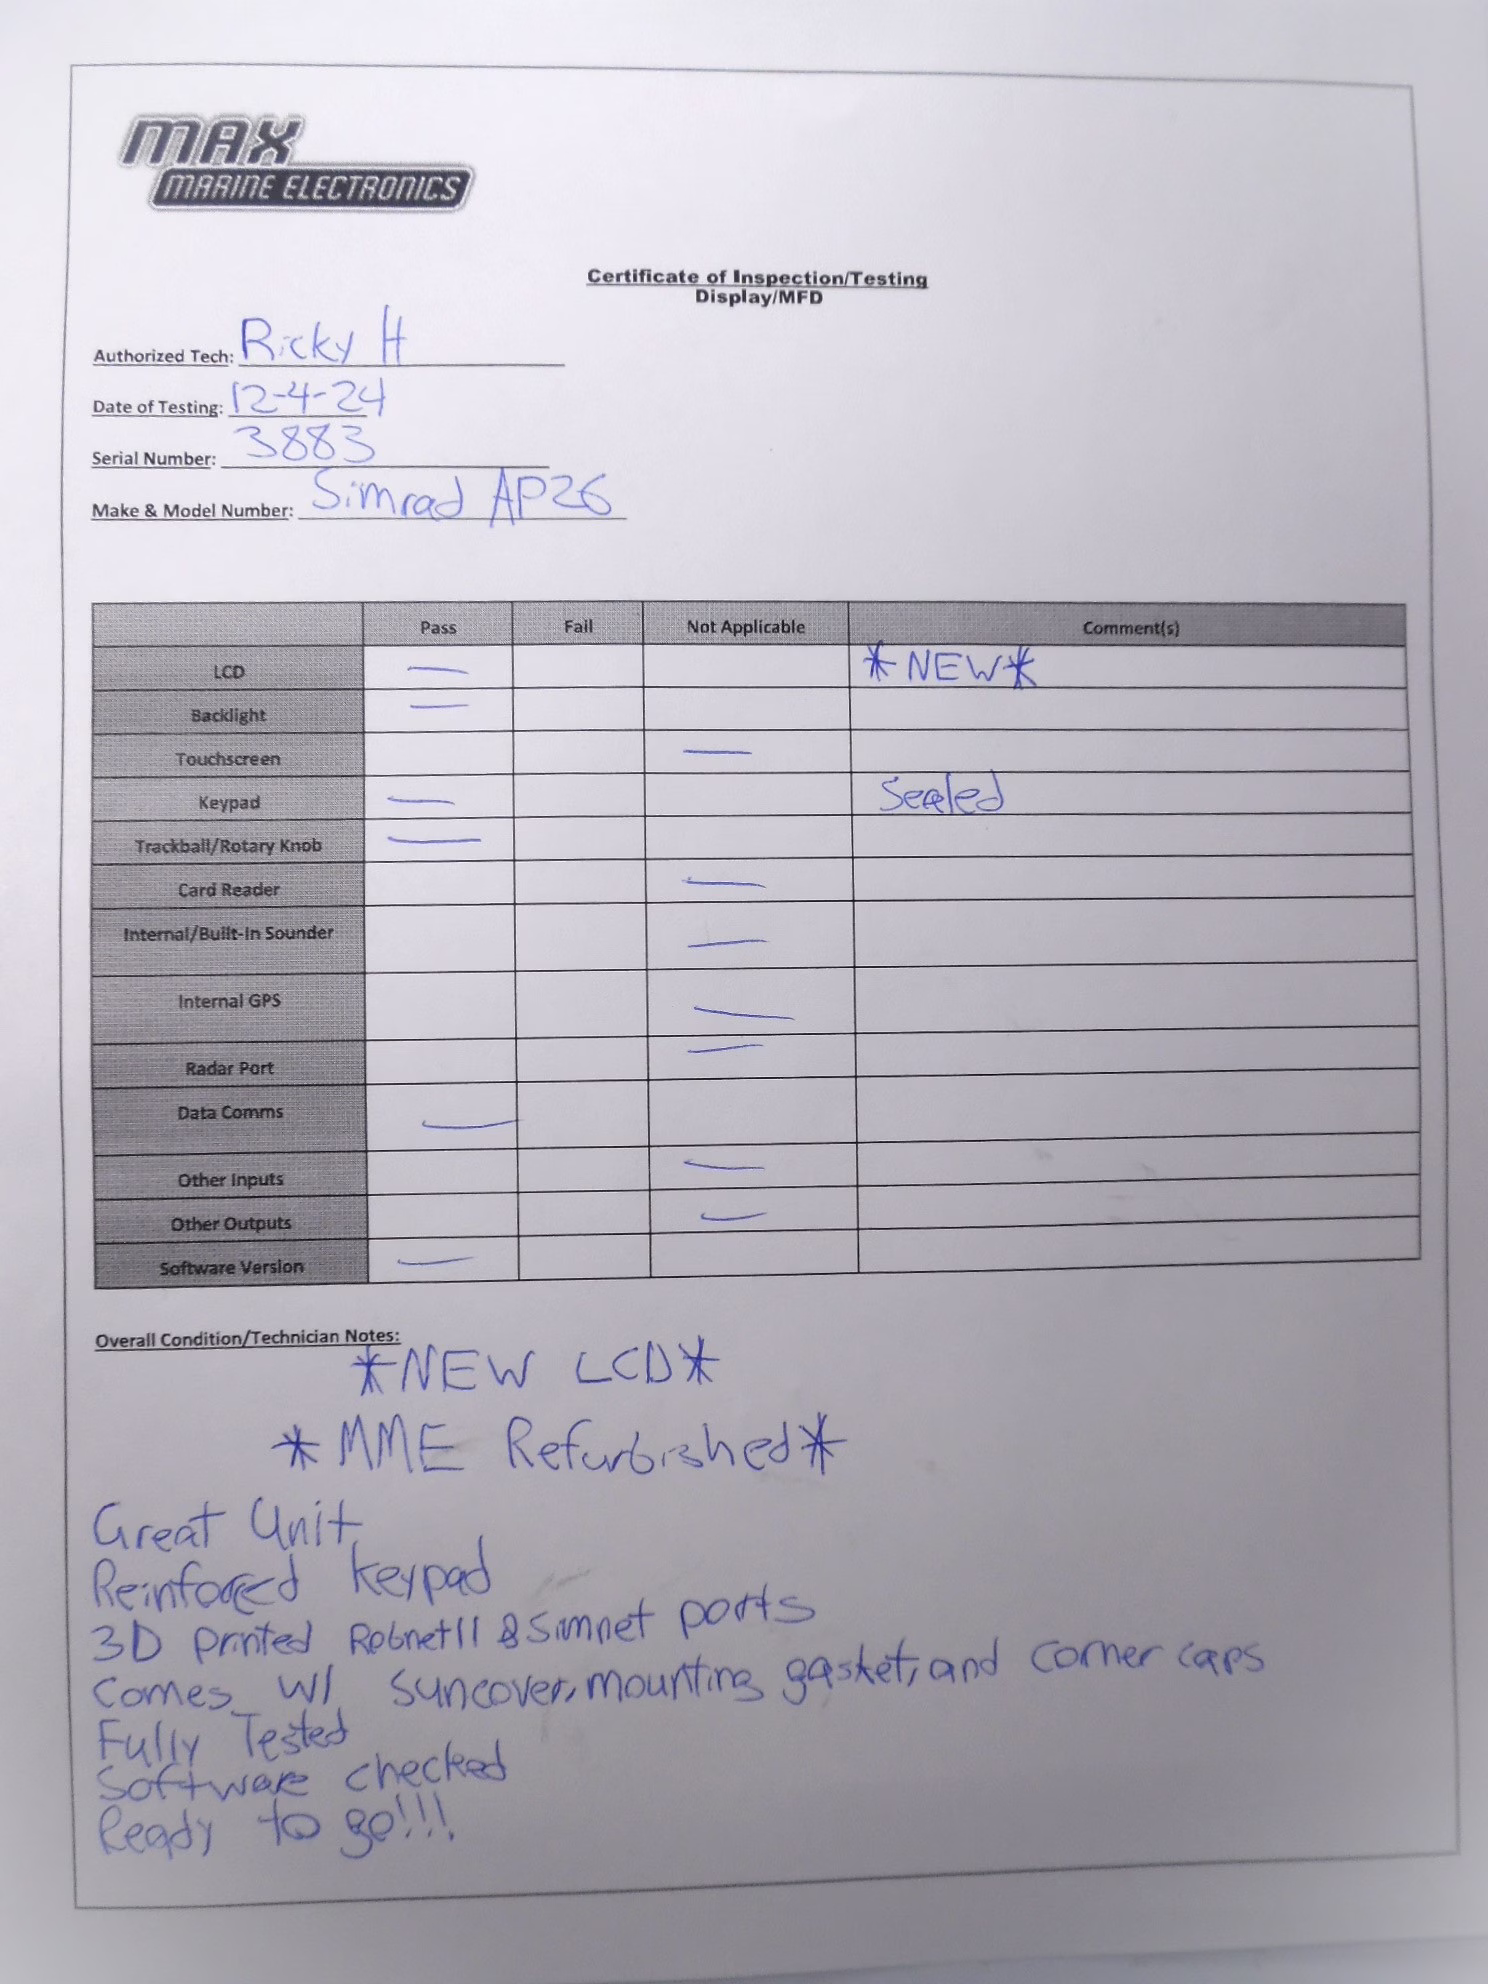 MAX
MARINE ELECTRONICS
Certificate of Inspection/Testing
Display/MFD
Authorized Tech: Ricky H
Date of Testing: 12-4-24
Serial Number: 3883
Make & Model Number: Simrad AP26
Pass Fail Not Applicable Comment(s)
LCD — *NEW*
Backlight —
Touchscreen —
Keypad — Sealed
Trackball/Rotary Knob —
Card Reader —
Internal/Built-In Sounder —
Internal GPS —
Radar Port —
Data Comms —
Other Inputs —
Other Outputs —
Software Version —
Overall Condition/Technician Notes:
*NEW LCD*
*MME Refurbished*
Great Unit
Reinforced keypad
3D printed RobnetII & Simnet ports
Comes w/ suncover, mounting gasket, and corner caps
Fully Tested
Software checked
Ready to go!!!